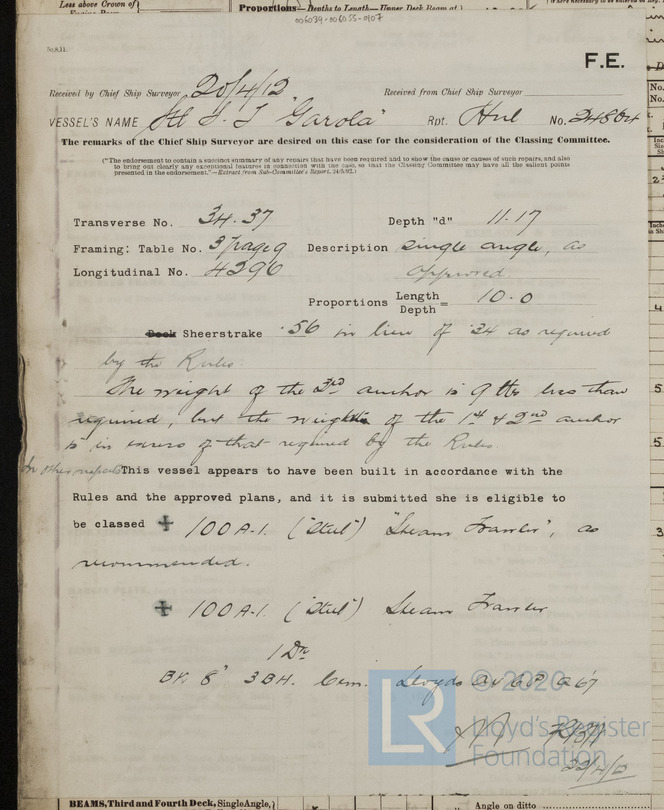 Less above Crown of
Proportions—Depths to Length—Upper Deck Beam at)
006039-006055-0107
F.E.
Received by Chief Ship Surveyor 20/4/12 Received from Chief Ship Surveyor
VESSEL'S NAME Stl S. T "Garola" Rpt. Hul No. 24864
The remarks of the Chief Ship Surveyor are desired on this case for the consideration of the Classing Committee.
("The endorsement to contain a succinct summary of any repairs that have been required and to show the cause or causes of such repairs, and also
to bring out clearly any exceptional features in connection with the case, so that the Classing Committee may have all the salient points
presented in the endorsement."—Extract from Sub-Committee's Report, 24/5/92.)
Transverse No. 34.37 Depth "d" 11.17
Framing: Table No. 3 page 9 Description single angle, as
Longitudinal No. 4296 approved
Proportions Length/Depth = 10.0
Deck Sheerstrake .56 in lieu of .34 as required
by the Rules.
The weight of the 3rd anchor is 9 lbs less than
required, but the weight of the 1st & 2nd anchor
is in excess of that required by the Rules.
In other respects This vessel appears to have been built in accordance with the
Rules and the approved plans, and it is submitted she is eligible to
be classed ✠ 100A.1. ("Steel") "Steam Trawler", as
recommended.
✠ 100A.1. ("Steel") Steam Trawler
1 Dk
BK 8" 3BH. Cem. Lloyds A & CP
© 2020
LR
Lloyd's Register
Foundation
22/4/12
BEAMS, Third and Fourth Deck, Single Angle,
Angle on ditto